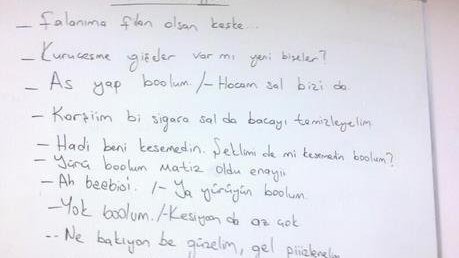 - falanıma filan olsan keske...
- Kurucesme gifeler var mı yeni biseler?
- As yap boolum. /- Hocam sal bizi da
- Kortiim bi sigara sal da bacayı temizleyelim
- Hadi beni kesemedin. Seklimi de mi kesemedin boolum?
- Yürü boolum matiz oldu enayii
- Ah beebisi. /- Ya yürüyün boolum.
- Yok boolum. /- Kesiyon da az çok
-- Ne bakıyon be güzelim, gel piiizlenelim